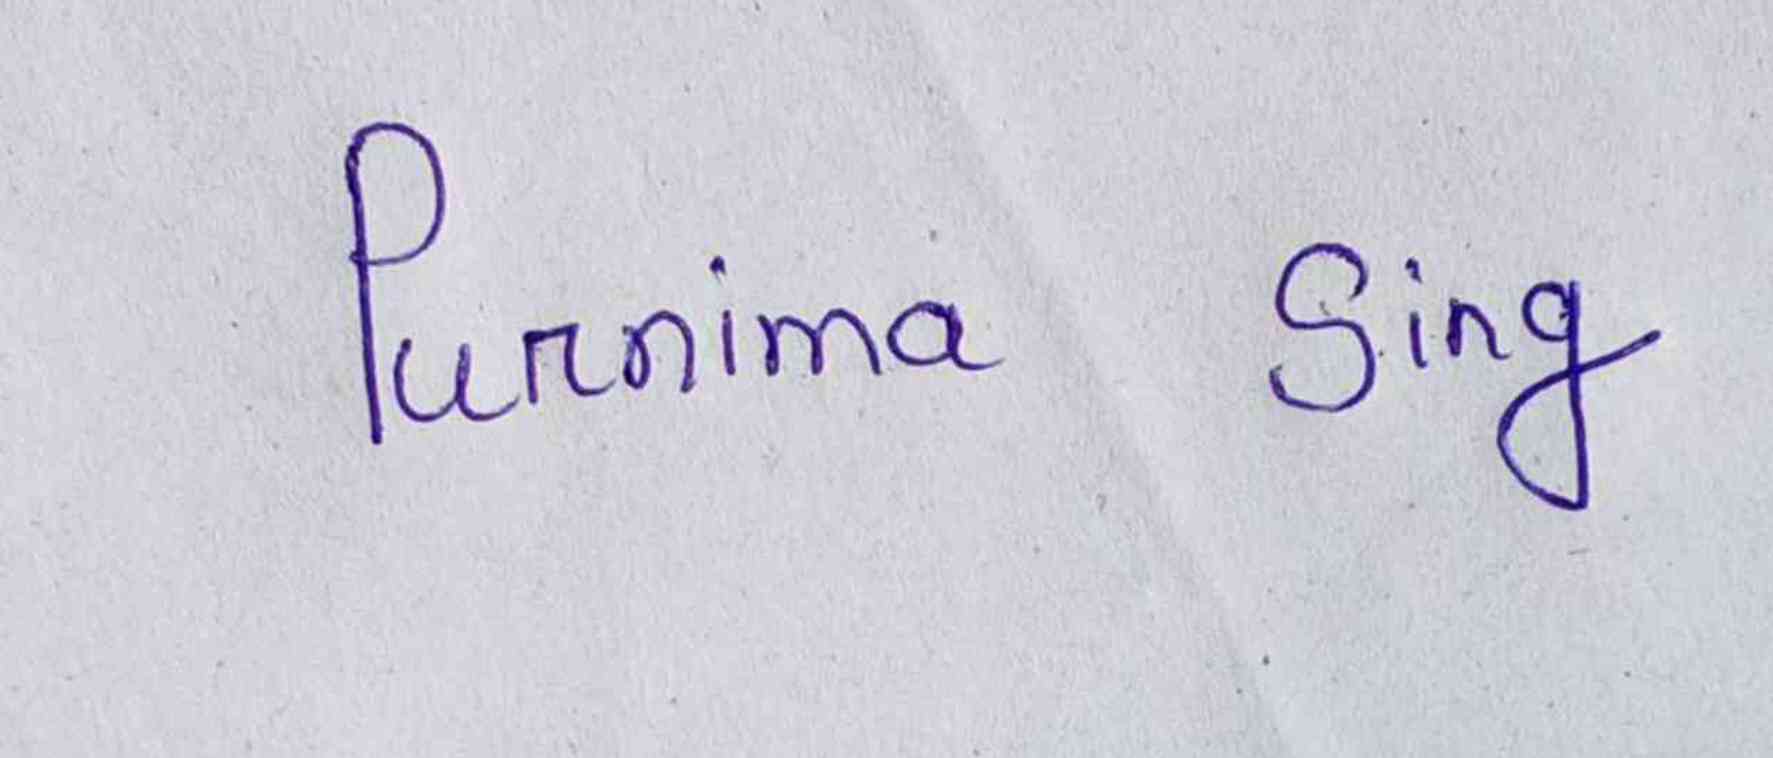 Purnima Sing